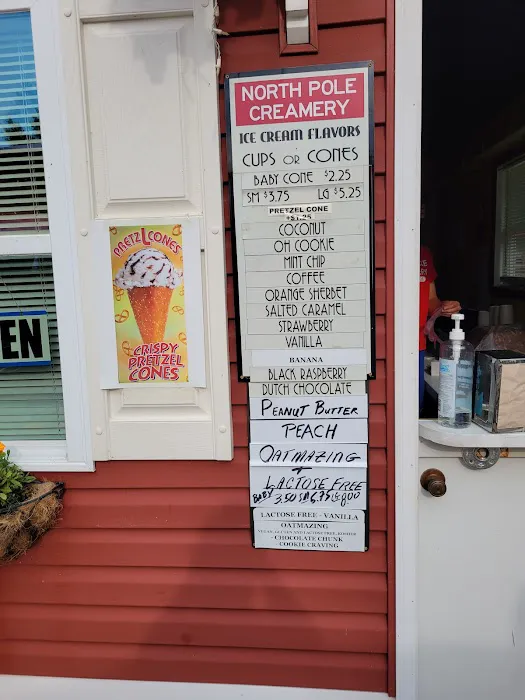 NORTH POLE
CREAMERY
ICE CREAM FLAVORS
CUPS OR CONES
BABY CONE $2.25
SM $3.75 LG $5.25
PRETZEL CONE
+$1.25
COCONUT
OH COOKIE
MINT CHIP
COFFEE
ORANGE SHERBET
SALTED CARAMEL
STRAWBERRY
VANILLA
BANANA
BLACK RASPBERRY
DUTCH CHOCOLATE
PEANUT BUTTER
PEACH
OATMAZING
+
LACTOSE FREE
BABY 3.50 SM 6.75 LG 8.00
LACTOSE FREE - VANILLA
OATMAZING
VEGAN, GLUTEN AND LACTOSE FREE, KOSHER
- CHOCOLATE CHUNK
COOKIE CRAVING
PRETZLCONES
CRISPY
PRETZEL
CONES
EN